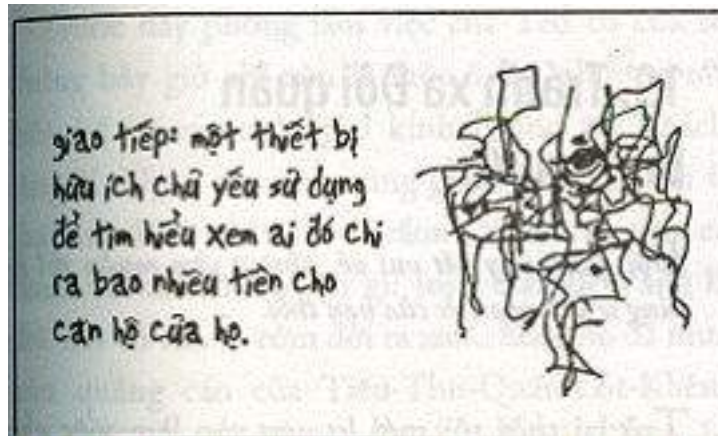 giao tiếp: một thiết bị
hữu ích chủ yếu sử dụng
để tìm hiểu xem ai đó chi
ra bao nhiêu tiền cho
căn hộ của họ.